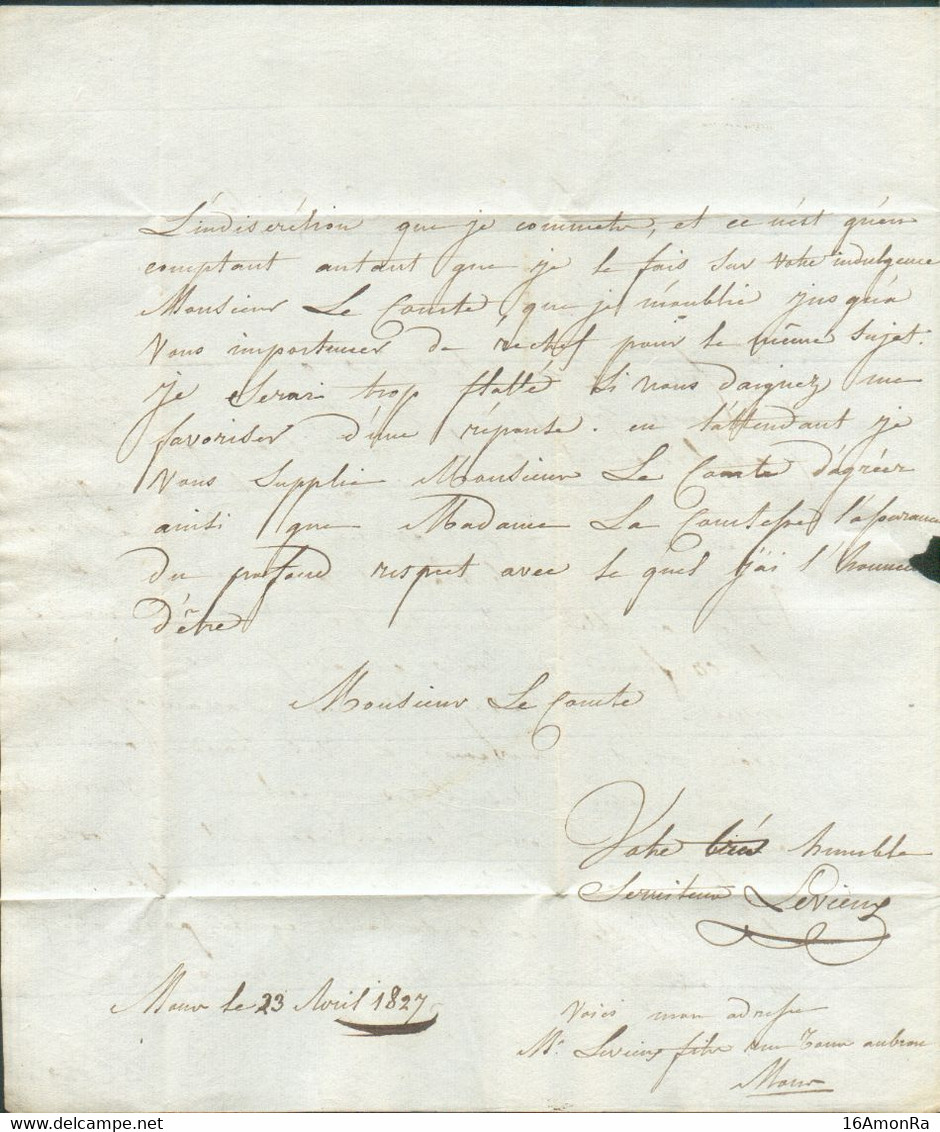 L'indiscrétion que je commets, et ce n'est qu'en
comptant autant que je le fais sur votre indulgence
Monsieur Le Comte que je m'oublie jusqu'a
Vous importuner de rechef pour le même sujet.
Je serai trop flatté si vous daignez me
favoriser d'une réponse. en l'attendant je
Vous supplie Monsieur Le Comte d'agréer
ainsi que Madame La Comtesse l'assurance
du profond respect avec le quel j'ai l'honneur
d'être
Monsieur Le Comte
Votre très humble
Serviteur Levieux
Mons le 23 Avril 1827
Voici mon adresse
Mr. Levieux fils rue
Mons
delcampe.net
16AmonRa